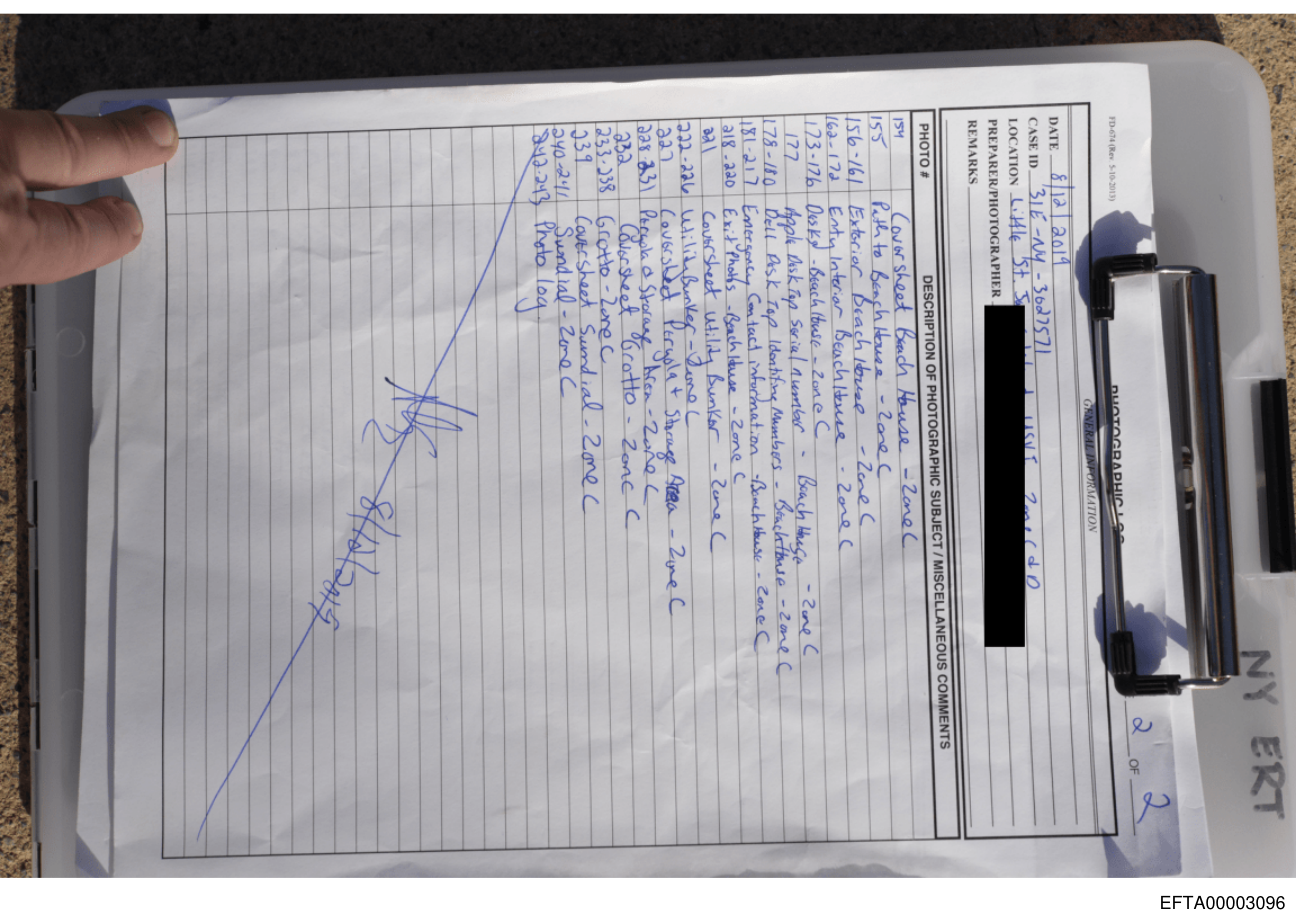 FD-674 (Rev. 5-10-2013)
PHOTOGRAPHIC LOG
2 OF 2
GENERAL INFORMATION
DATE 8/12/2019
CASE ID 31E-NY-3027571
LOCATION Little St. USVI Zone C & D
PREPARER/PHOTOGRAPHER
REMARKS
PHOTO # DESCRIPTION OF PHOTOGRAPHIC SUBJECT / MISCELLANEOUS COMMENTS
154 Coversheet Beach House - Zone C
155 Path to Beach House - Zone C
156-161 Exterior Beach House - Zone C
162-172 Entry Interior Beach House - Zone C
173-176 Desks - Beach House - Zone C
177 Apple Desk Top Serial number - Beach House - Zone C
178-180 Dell Desk Top Identifing Numbers - Beach House - Zone C
181-217 Emergency Contact information - Beach House - Zone C
218-220 Exit photos - Beach House - Zone C
221 Coversheet Utility Bunker - Zone C
222-226 Utility Bunker - Zone C
227 Coversheet Pergola + Storage Area - Zone C
228-231 Pergola & Storage Area - Zone C
232 Coversheet Grotto - Zone C
233-238 Grotto - Zone C
239 Coversheet Sundial - Zone C
240-241 Sundial - Zone C
242-243 Photo log
8/12/2019
NY ERT
EFTA00003096